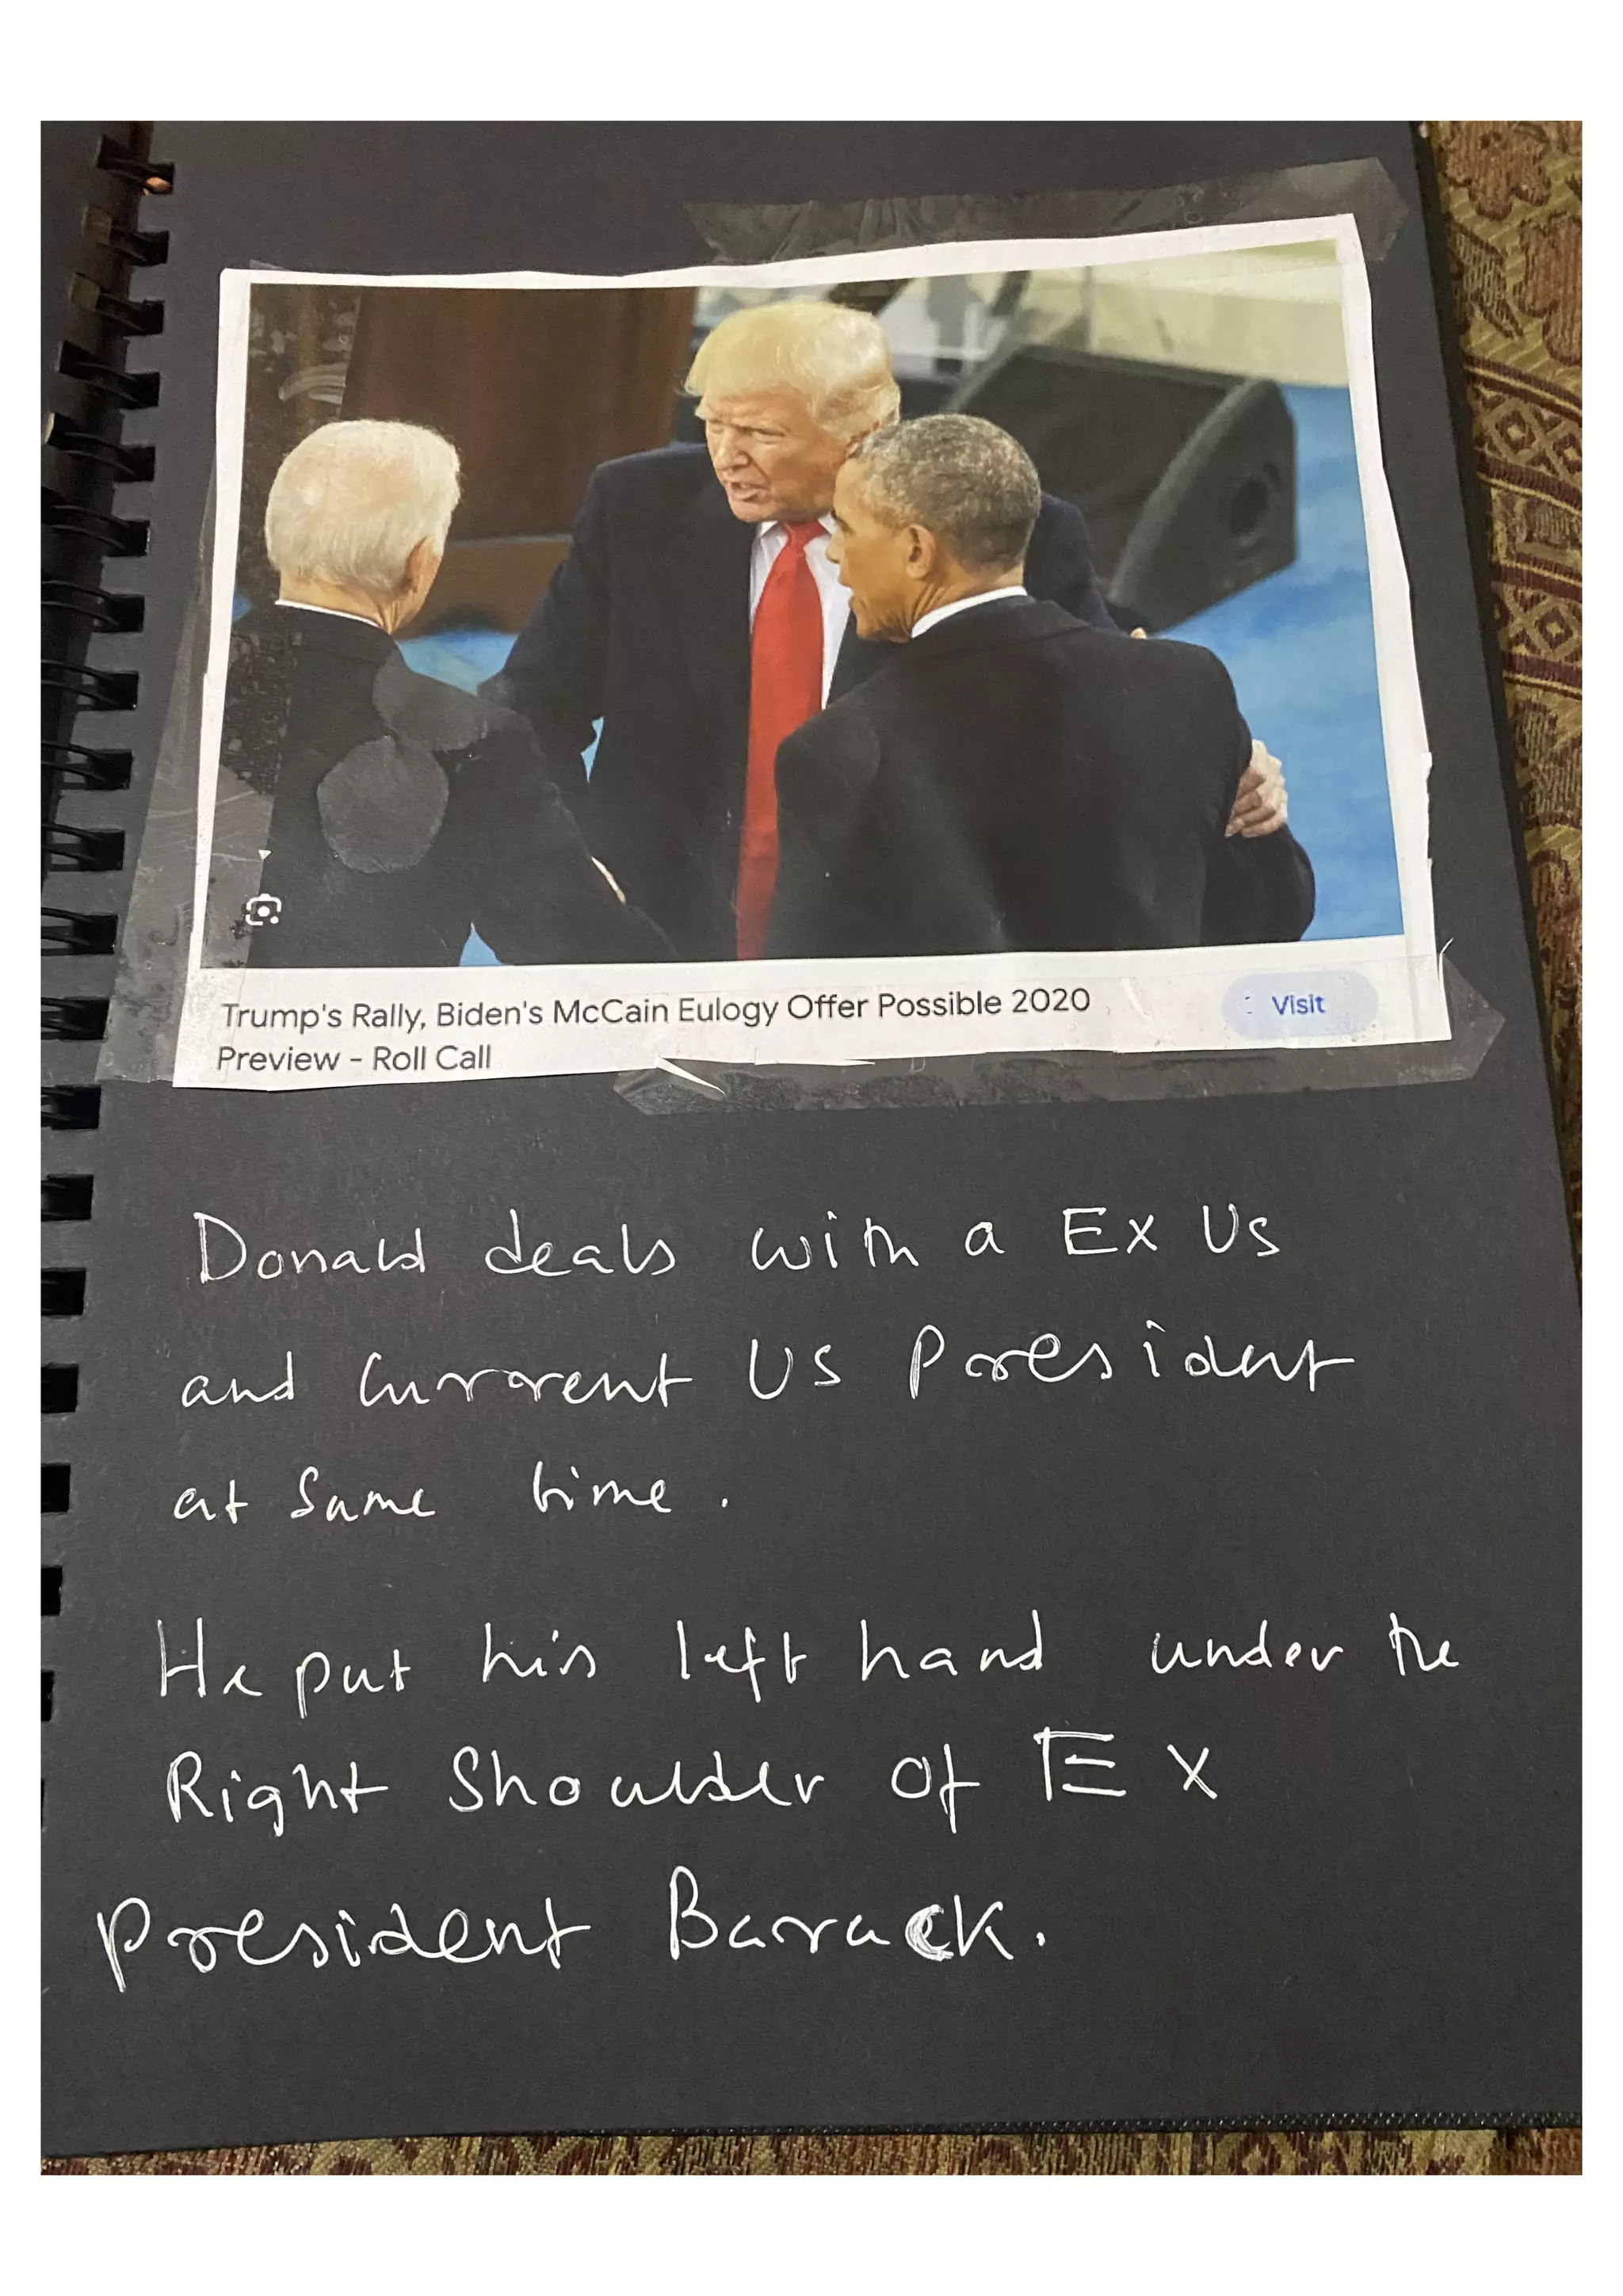 Trump's Rally, Biden's McCain Eulogy Offer Possible 2020
Preview - Roll Call
Visit
Donald deals with a Ex US
and Current US President
at Same time.
He put his left hand under the
Right Shoulder of EX
President Barack.